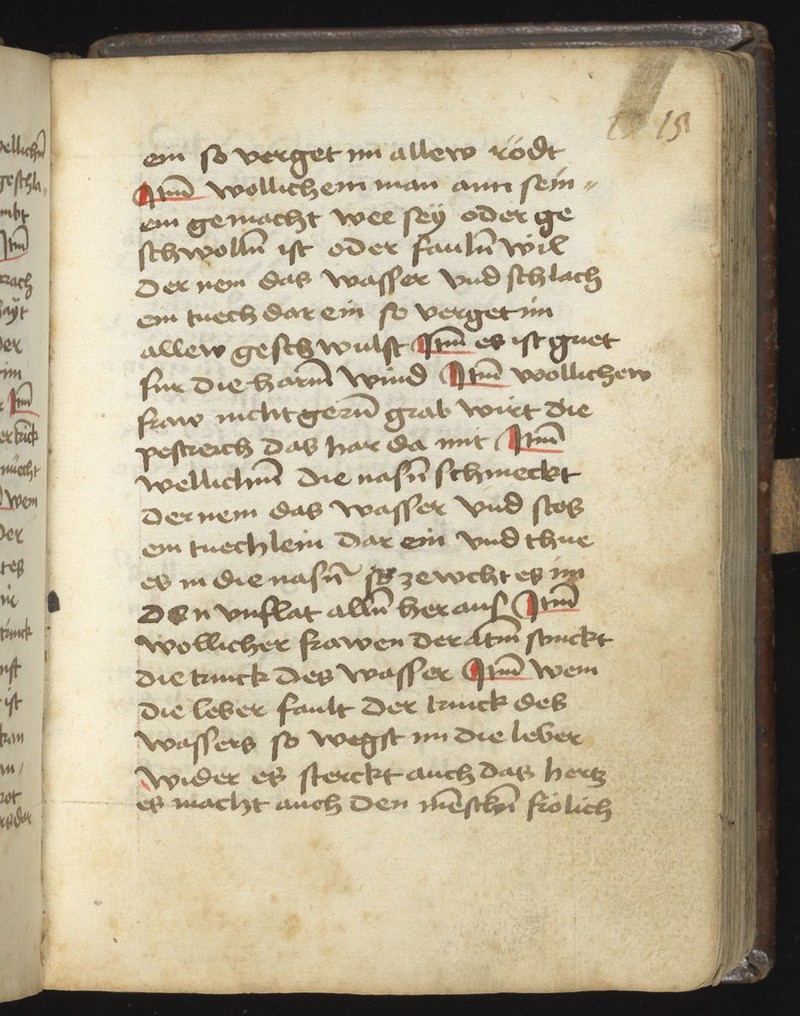 15
ein so verget im allew rödt
Itm̄ wollichem man ann sein〃
ein gemacht wee seÿ oder ge
schwolln̄ ist oder fauln̄ wil
der nem das wasser vnd schlach
ein tuech dar ein so verget im
allew geschwulst Itm̄ es ist guet
fur die harm̄ wind Itm̄ wollichew
fraw nicht gern̄ grab wirt die
pestreich das har da mit Itm̄
wellichm̄ die nasn̄ schmeckt
der nem das wasser vnd stos
ein tuechlein dar ein vnd thue
es in die nasn̄ so zewcht es im
den vnflat alln̄ her aus Itm̄
wollicher frawen der atm̄ stinckt
die trinck des wasser Itm̄ wem
die leber fault der trinck des
wassers so wegst im die leber
wider es sterckt auch das hertz
es macht auch den mēschn̄ frölich